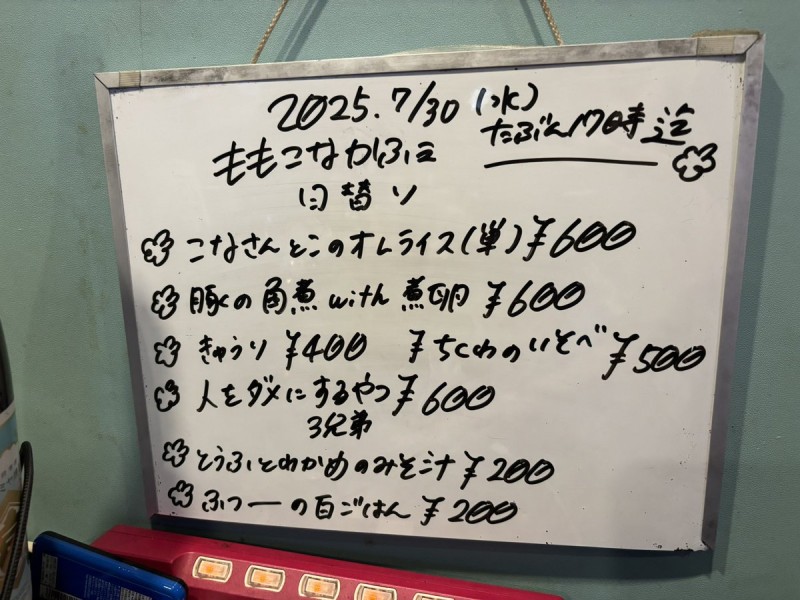 2025.7/30(水)
たぶん17時迄
ももこなかふぇ
日替り
こなさんとこのオムライス(単)¥600
豚の角煮with煮卵 ¥600
きゅうり ¥400 ちくわのいそべ ¥500
人をダメにするやつ ¥600
3兄弟
とうふとわかめのみそ汁 ¥200
ふつーの白ごはん ¥200